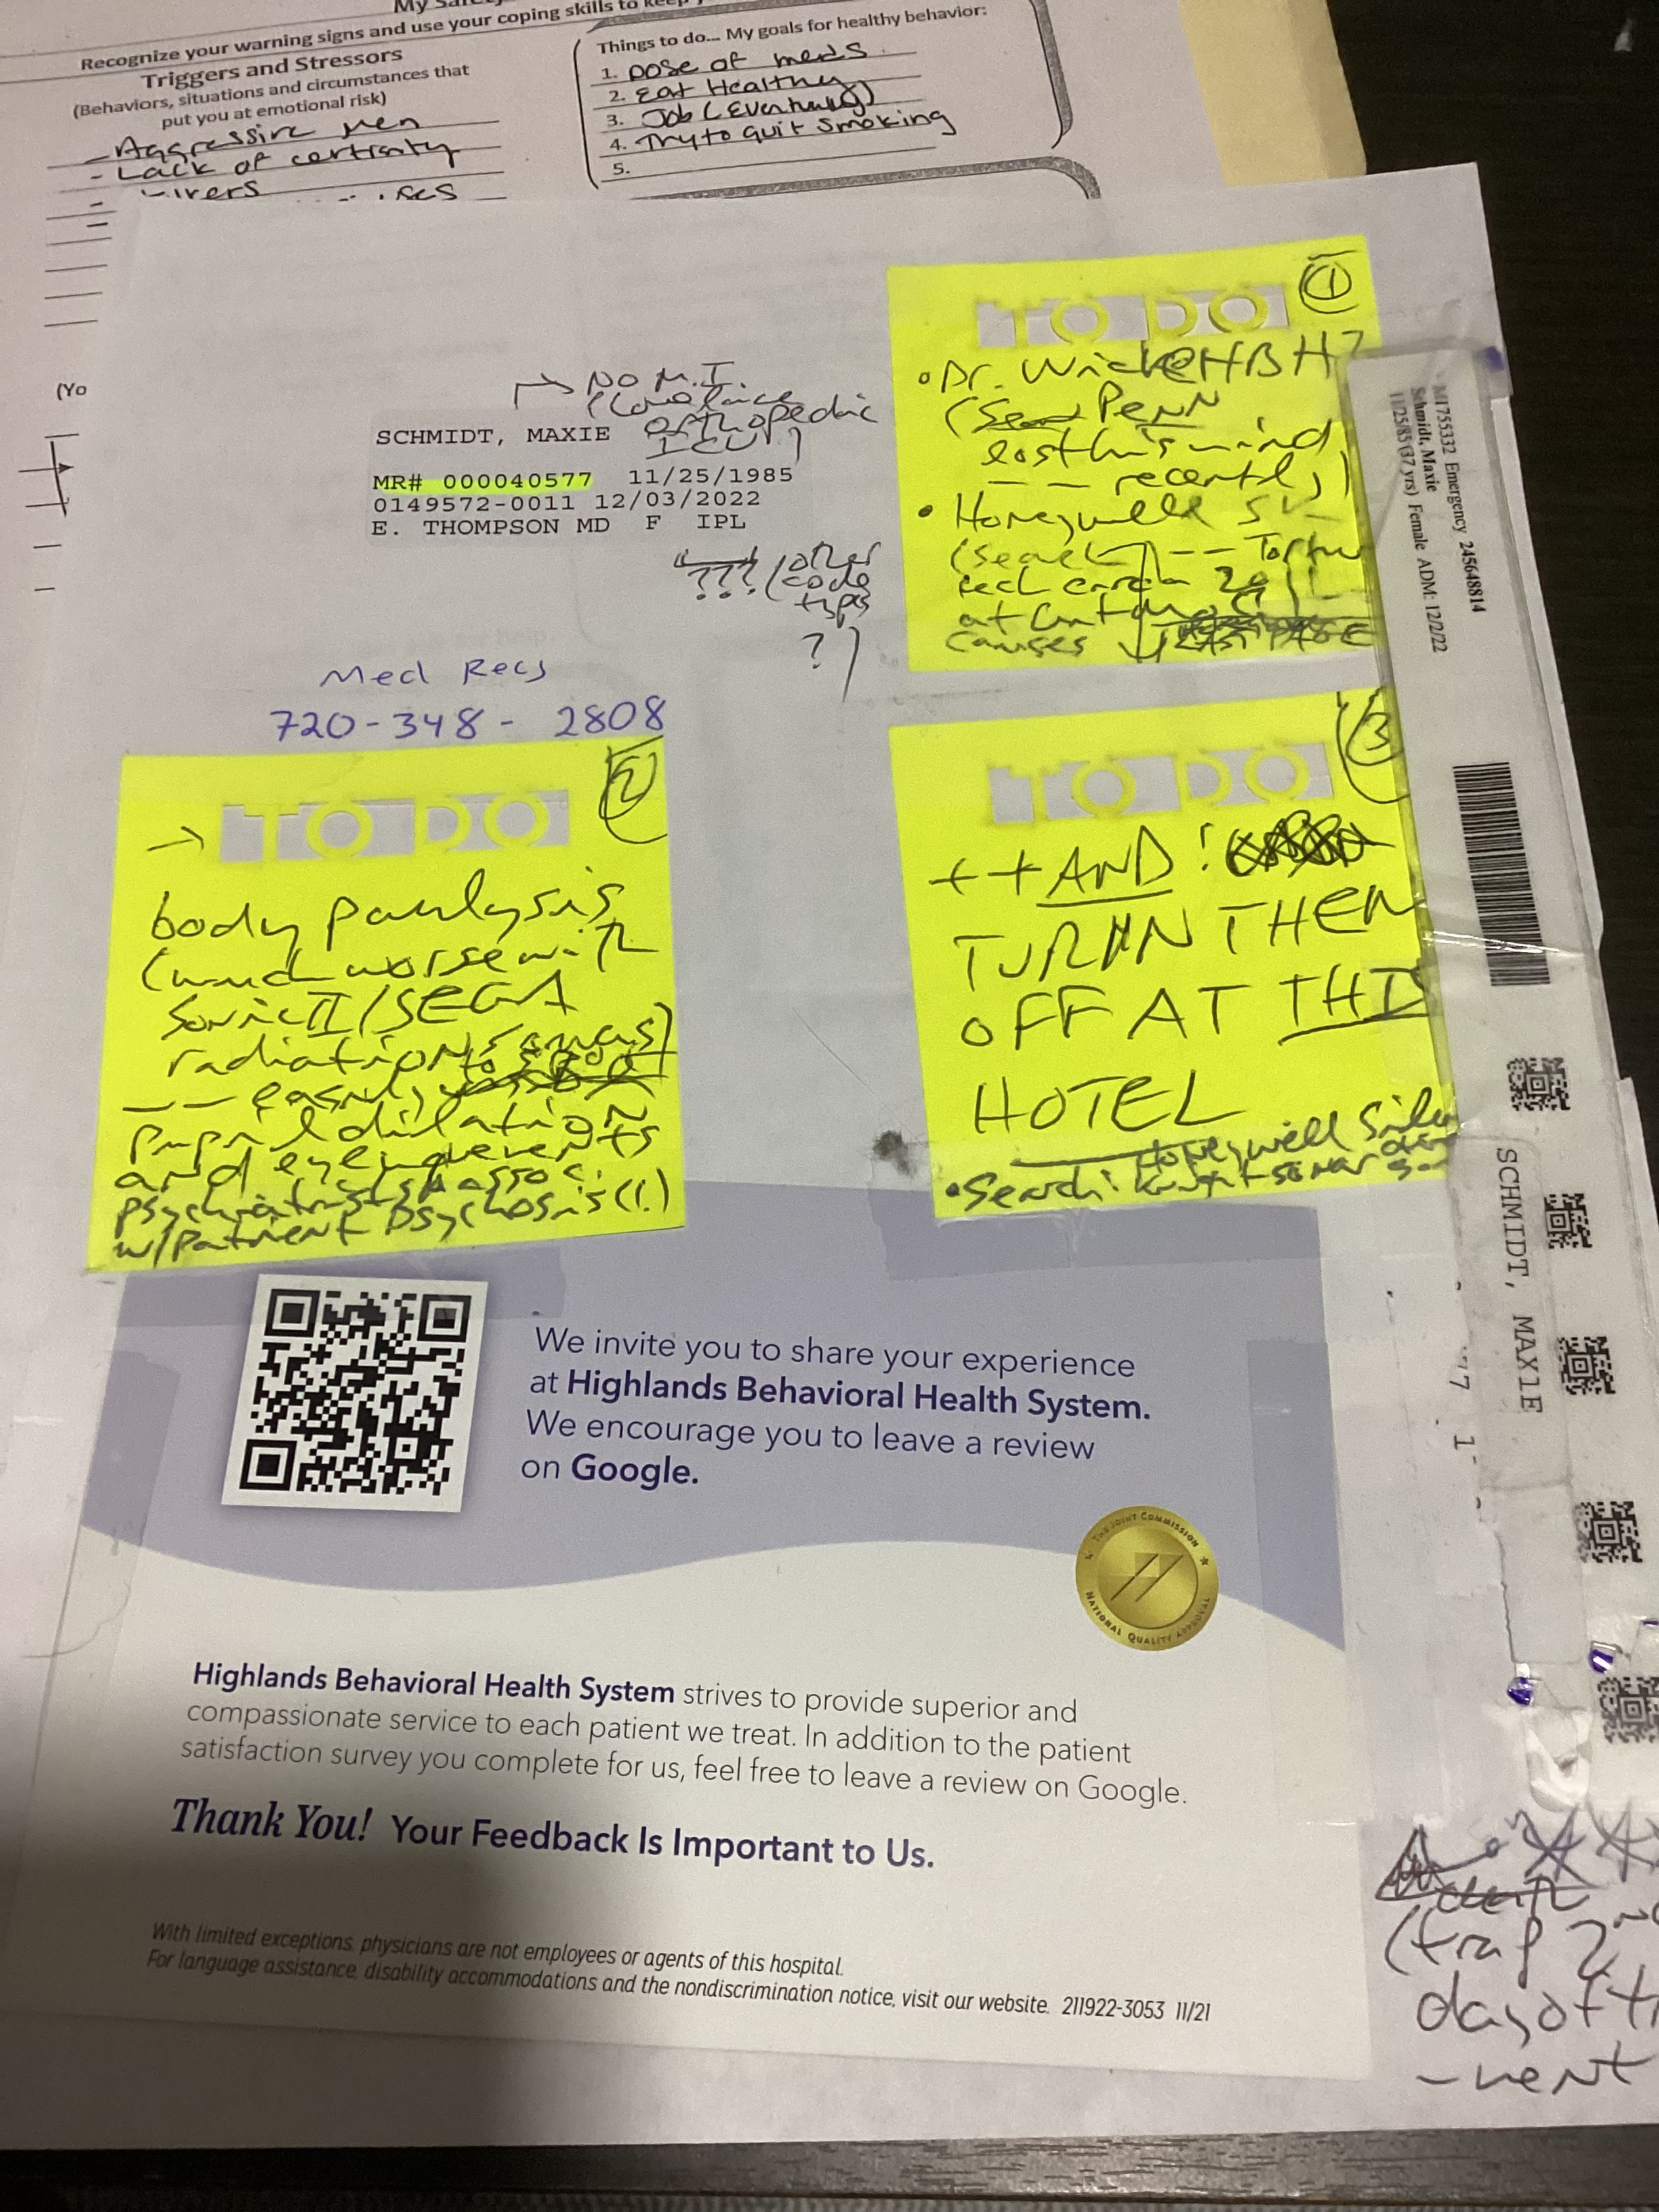 My
Recognize your warning signs and use your coping skills to
Triggers and Stressors
(Behaviors, situations and circumstances that
put you at emotional risk)
- Aggressive men
- Lack of certinty
Things to do... My goals for healthy behavior:
1. Dose of meds
2. Eat Healthy
3. Job (Eventually)
4. Try to quit smoking
5.
(Yo
→ NO M.I.
orthopedic
ICU?
SCHMIDT, MAXIE
MR# 000040577 11/25/1985
0149572-0011 12/03/2022
E. THOMPSON MD F IPL
??? (other
code
types
?)
Med Recs
720-348-2808
TO DO 1
• Dr. @HBH?
(Penn
lost his mind
-- recently)
• Honeywell
(search --
at
causes
M1755332 Emergency 245648814
Schmidt, Maxie
11/25/85 (37 yrs) Female ADM: 12/2/22
→ TO DO 2
body paulysis
(much worse with
Sonic II/SEGA
radiation
-- easily
pupil dilation
and eye movements
psychiatrists assoc.
w/patient psychosis (!)
TO DO 3
++ AND!
TURN THEM
OFF AT THI
HOTEL
• Search: Honeywell
SCHMIDT, MAXIE
We invite you to share your experience
at Highlands Behavioral Health System.
We encourage you to leave a review
on Google.
THE JOINT COMMISSION
NATIONAL QUALITY APPROVAL
Highlands Behavioral Health System strives to provide superior and
compassionate service to each patient we treat. In addition to the patient
satisfaction survey you complete for us, feel free to leave a review on Google.
Thank You! Your Feedback Is Important to Us.
With limited exceptions, physicians are not employees or agents of this hospital.
For language assistance, disability accommodations and the nondiscrimination notice, visit our website. 211922-3053 11/21
(trap 2nd
day of
-ment